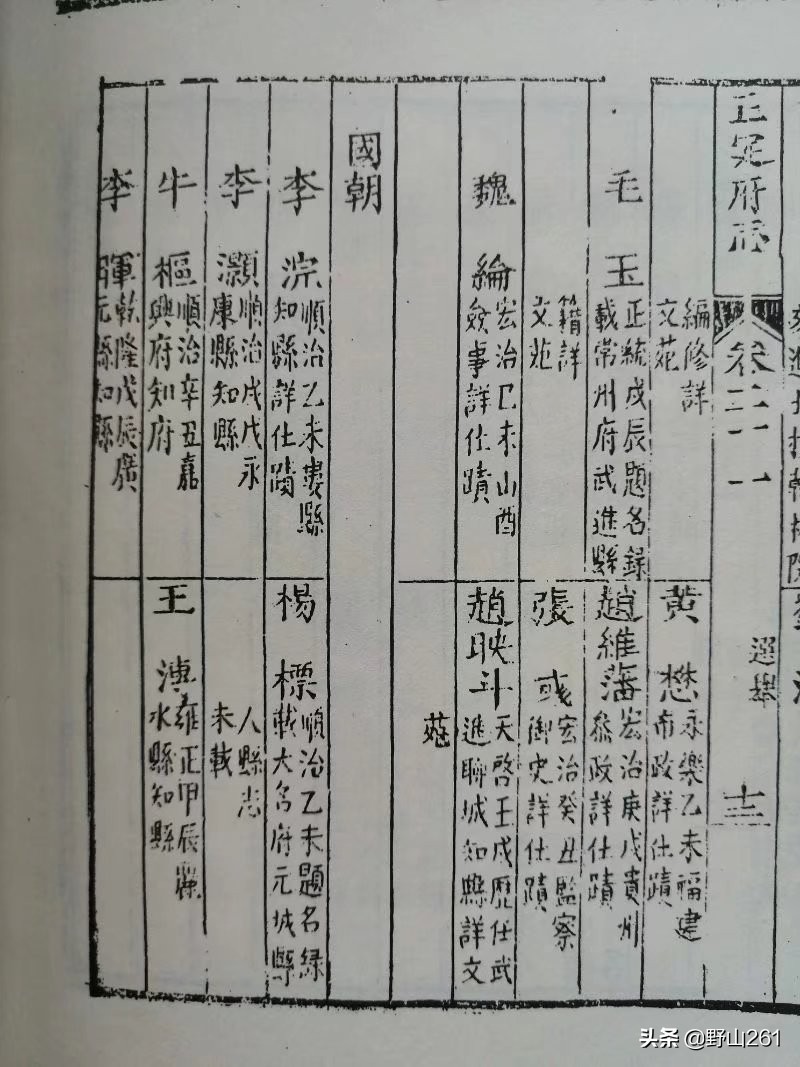 正㝎府志
卷二十一
選舉
十三
編修詳
文苑
黃懋
永樂乙未福建
布政詳仕蹟
毛玉
正統戊辰題名錄
載常州府武進縣
趙維藩
宏治庚戌貴州
叅政詳仕蹟
籍詳
文苑
張彧
宏治癸丑監察
御史詳仕蹟
魏綸
宏治己未山西
僉事詳仕蹟
趙映斗
天啓壬戌歷任武
進聊城知縣詳文
苑
國朝
李淙
順治乙未婁縣
知縣詳仕蹟
楊標
順治乙未題名録
載大名府元城縣
李灝
順治戊戌永
康縣知縣
人縣志
未載
牛樞
順治辛丑嘉
興府知府
王
雍正甲辰麗
水縣知縣
李暉
乾隆戊辰廣
元縣知縣
头条 @野山261